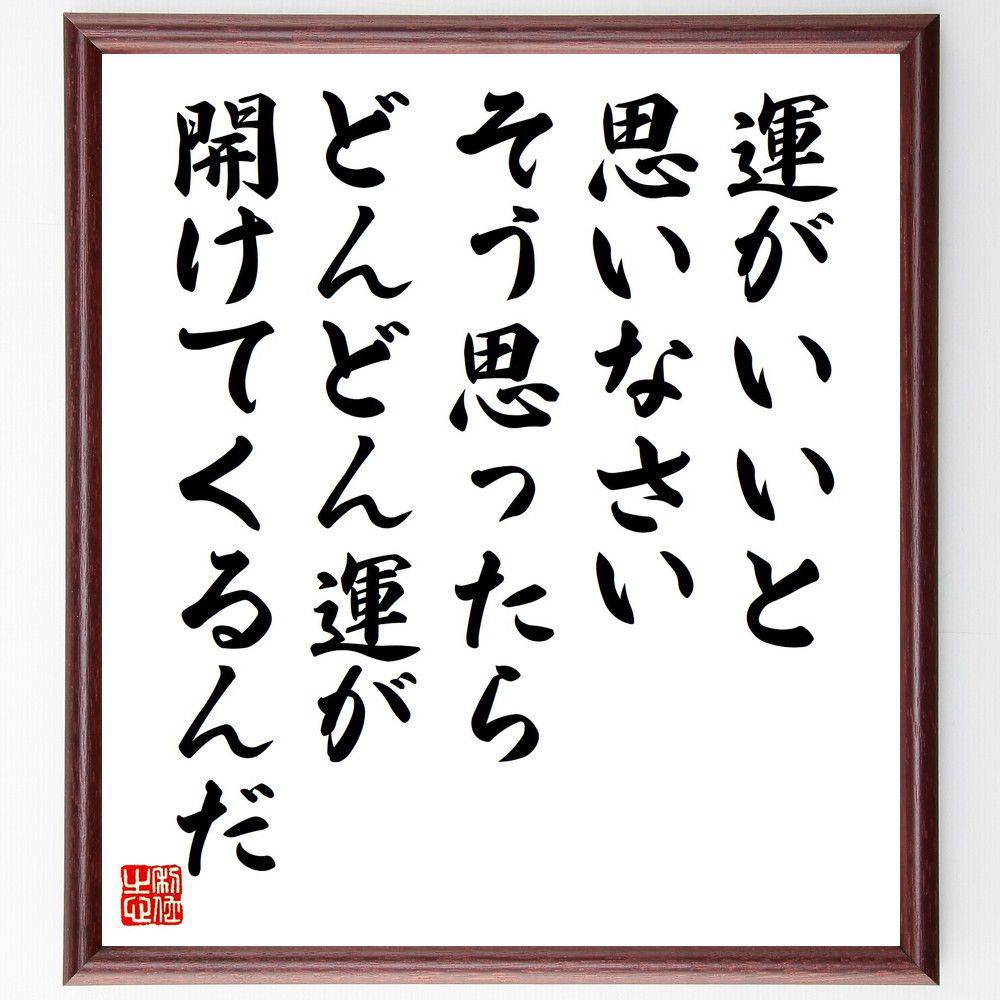 運がいいと
思いなさい
そう思ったら
どんどん運が
開けてくるんだ